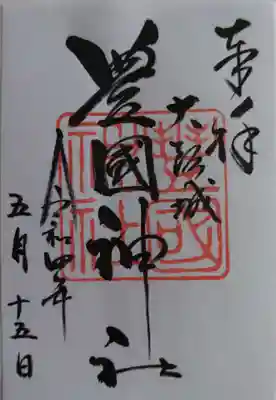 奉拝
大阪城
豊國神社
令和四年
五月十五日
豊國
神社